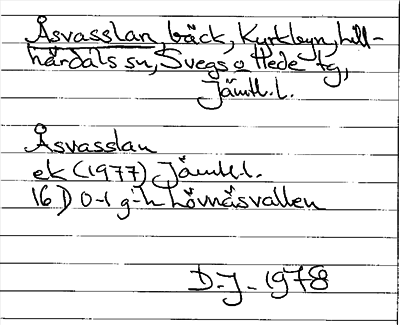 Åsvasslan, bäck, Kyrkbyn, Lill-
härdals sn, Svegs o Hede tg,
Jämtl. l.
Åsvasslan
ek (1977) Jämtl. l.
16 D 0-1 g-h Lövnäsvallen
D-J- 1978